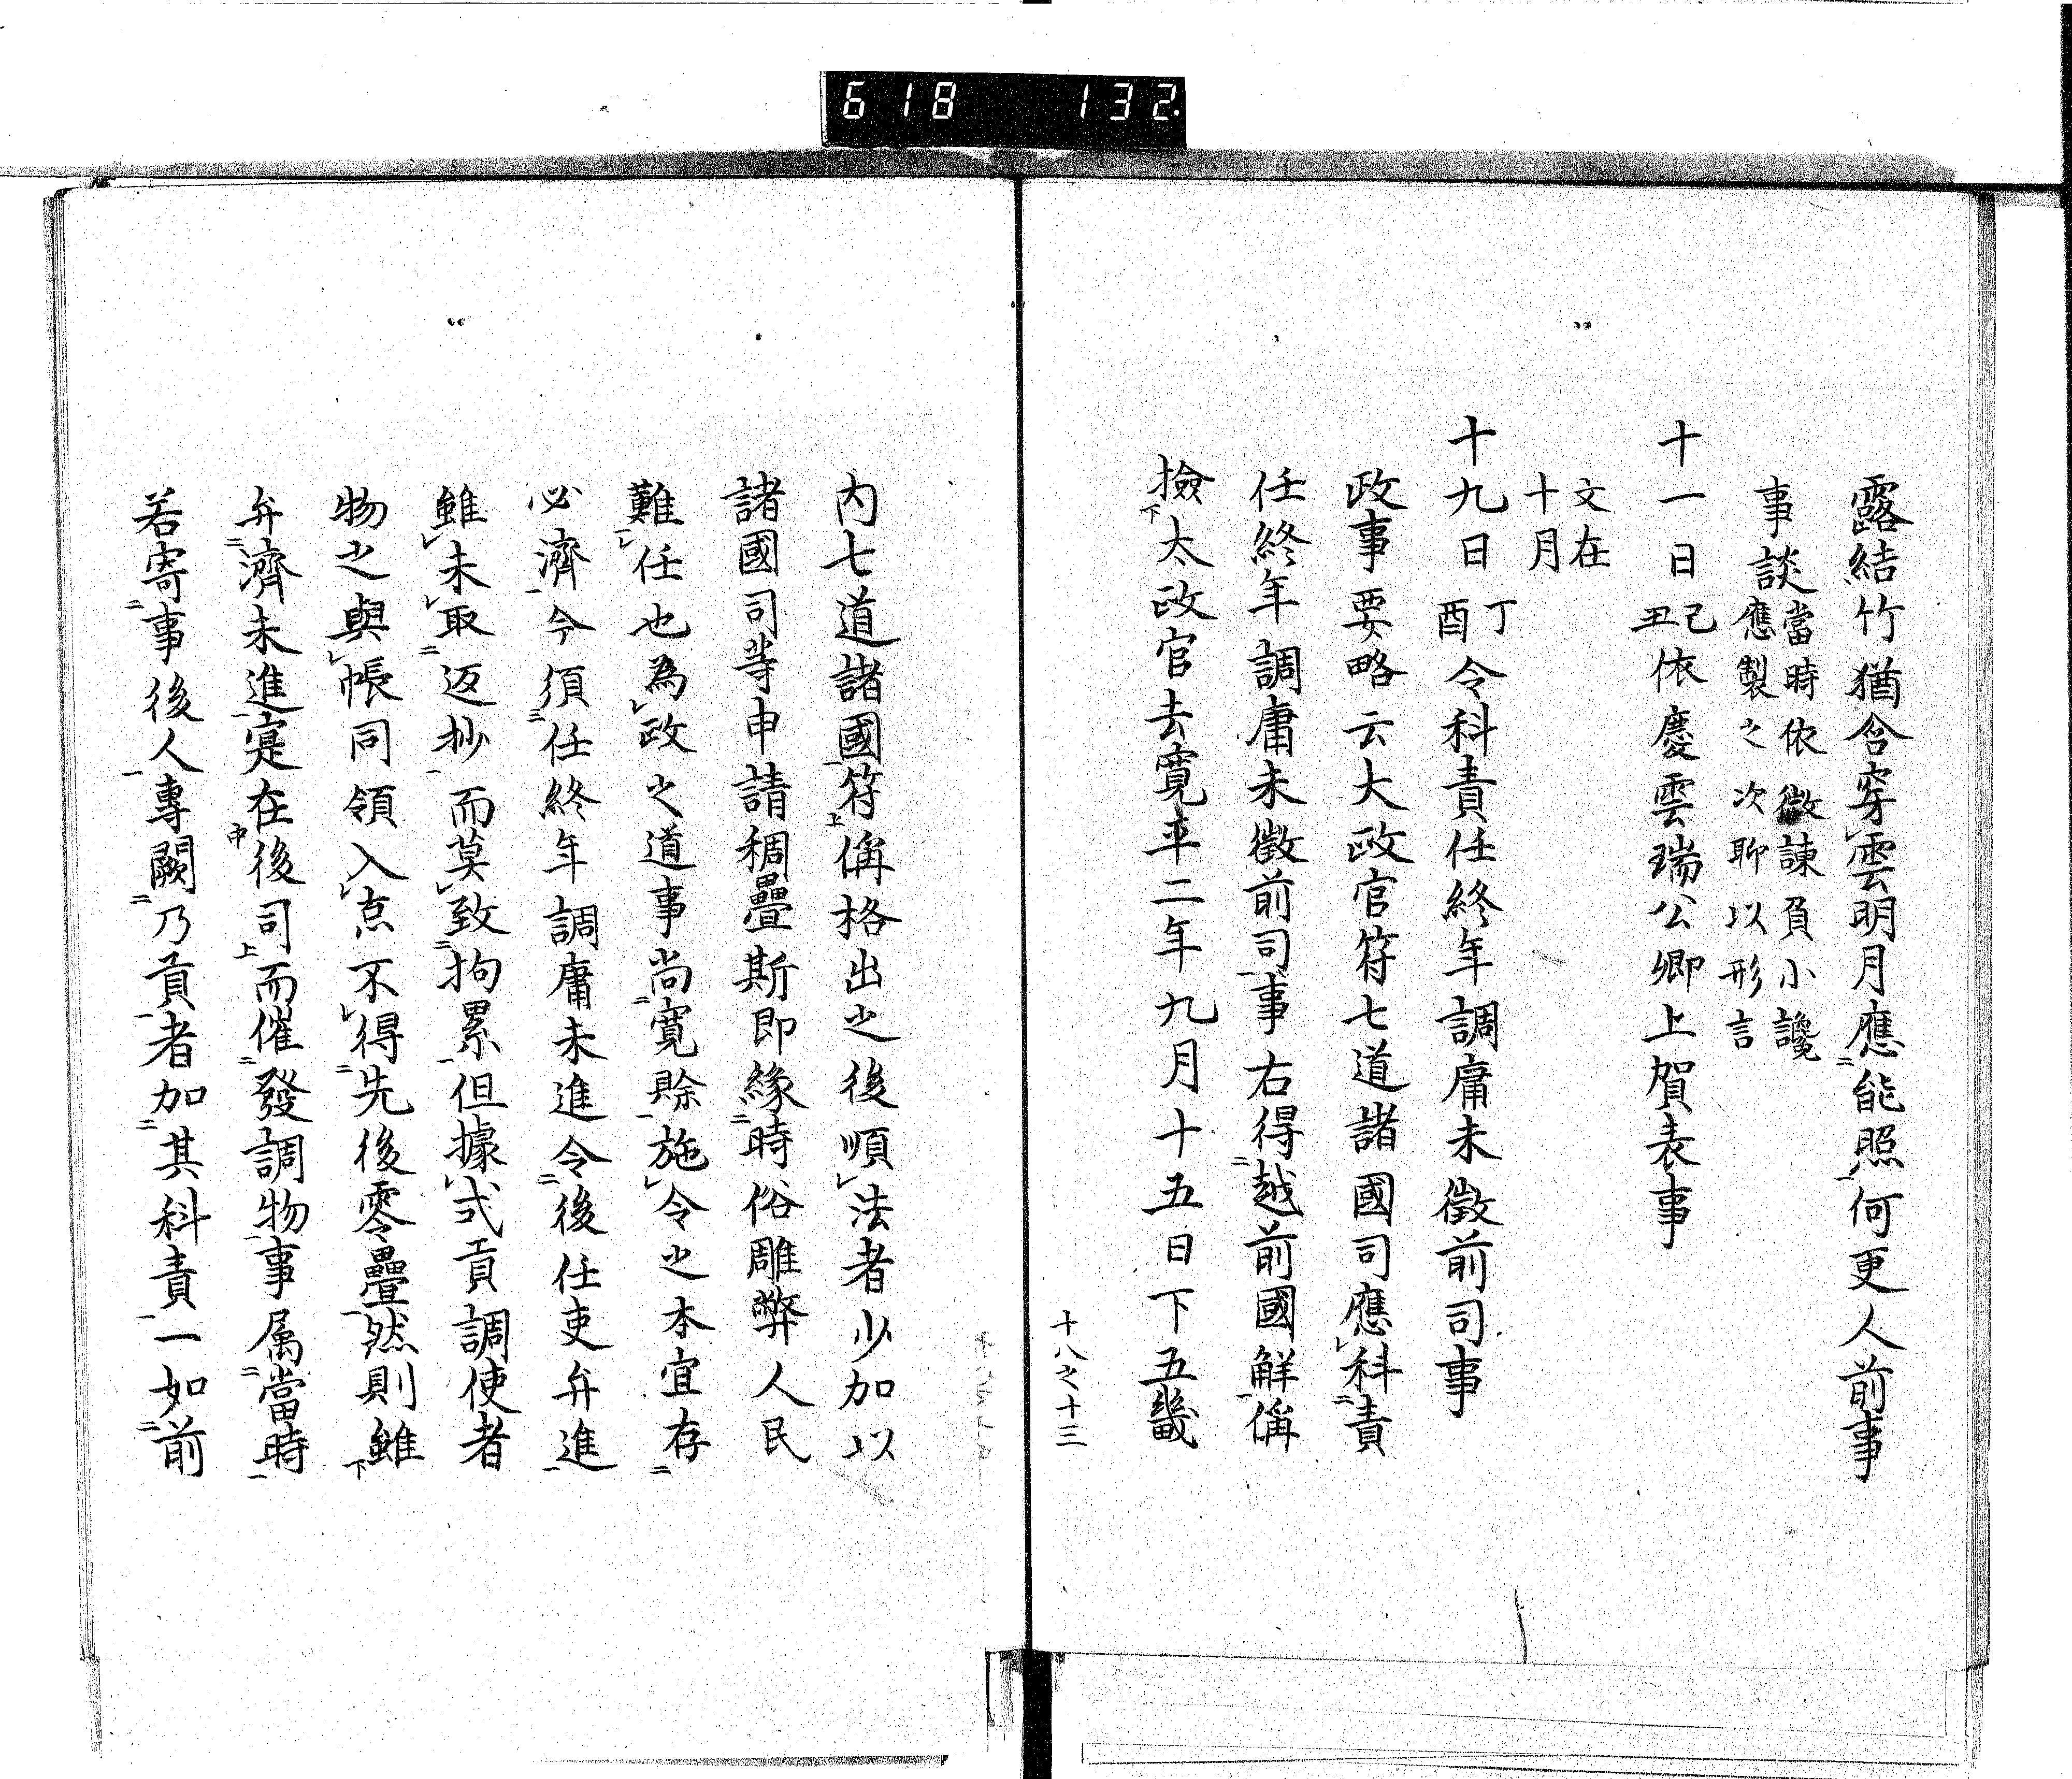 618 132.
露結竹猶含穿雲明月應能照何更人前事
事談當時依微諌負小讒
應製之次聊以形言
十一日己丑依慶雲瑞公卿上賀表事
文在
十月
十九日丁酉令科責任終年調庸未徴前司事
政事要略云大政官符七道諸國司應科責
任終年調庸未徴前司事右得越前國解偁
撿太政官去寛平二年九月十五日下五畿
十八之十三
内七道諸國符偁格出之後順法者少加以
諸國司等申請稠疊斯即緣時俗雕弊人民
難任也為政之道事尚寛賒施令之本宜存
必濟今須任終年調庸未進令後任吏弁進
雖未取返抄而莫致拘累但據式貢調使者
物之與帳同領入京不得先後零疊然則雖
弁濟未進寔在後司而催發調物事属當時
若寄事後人專闕乃貢者加其科責一如前